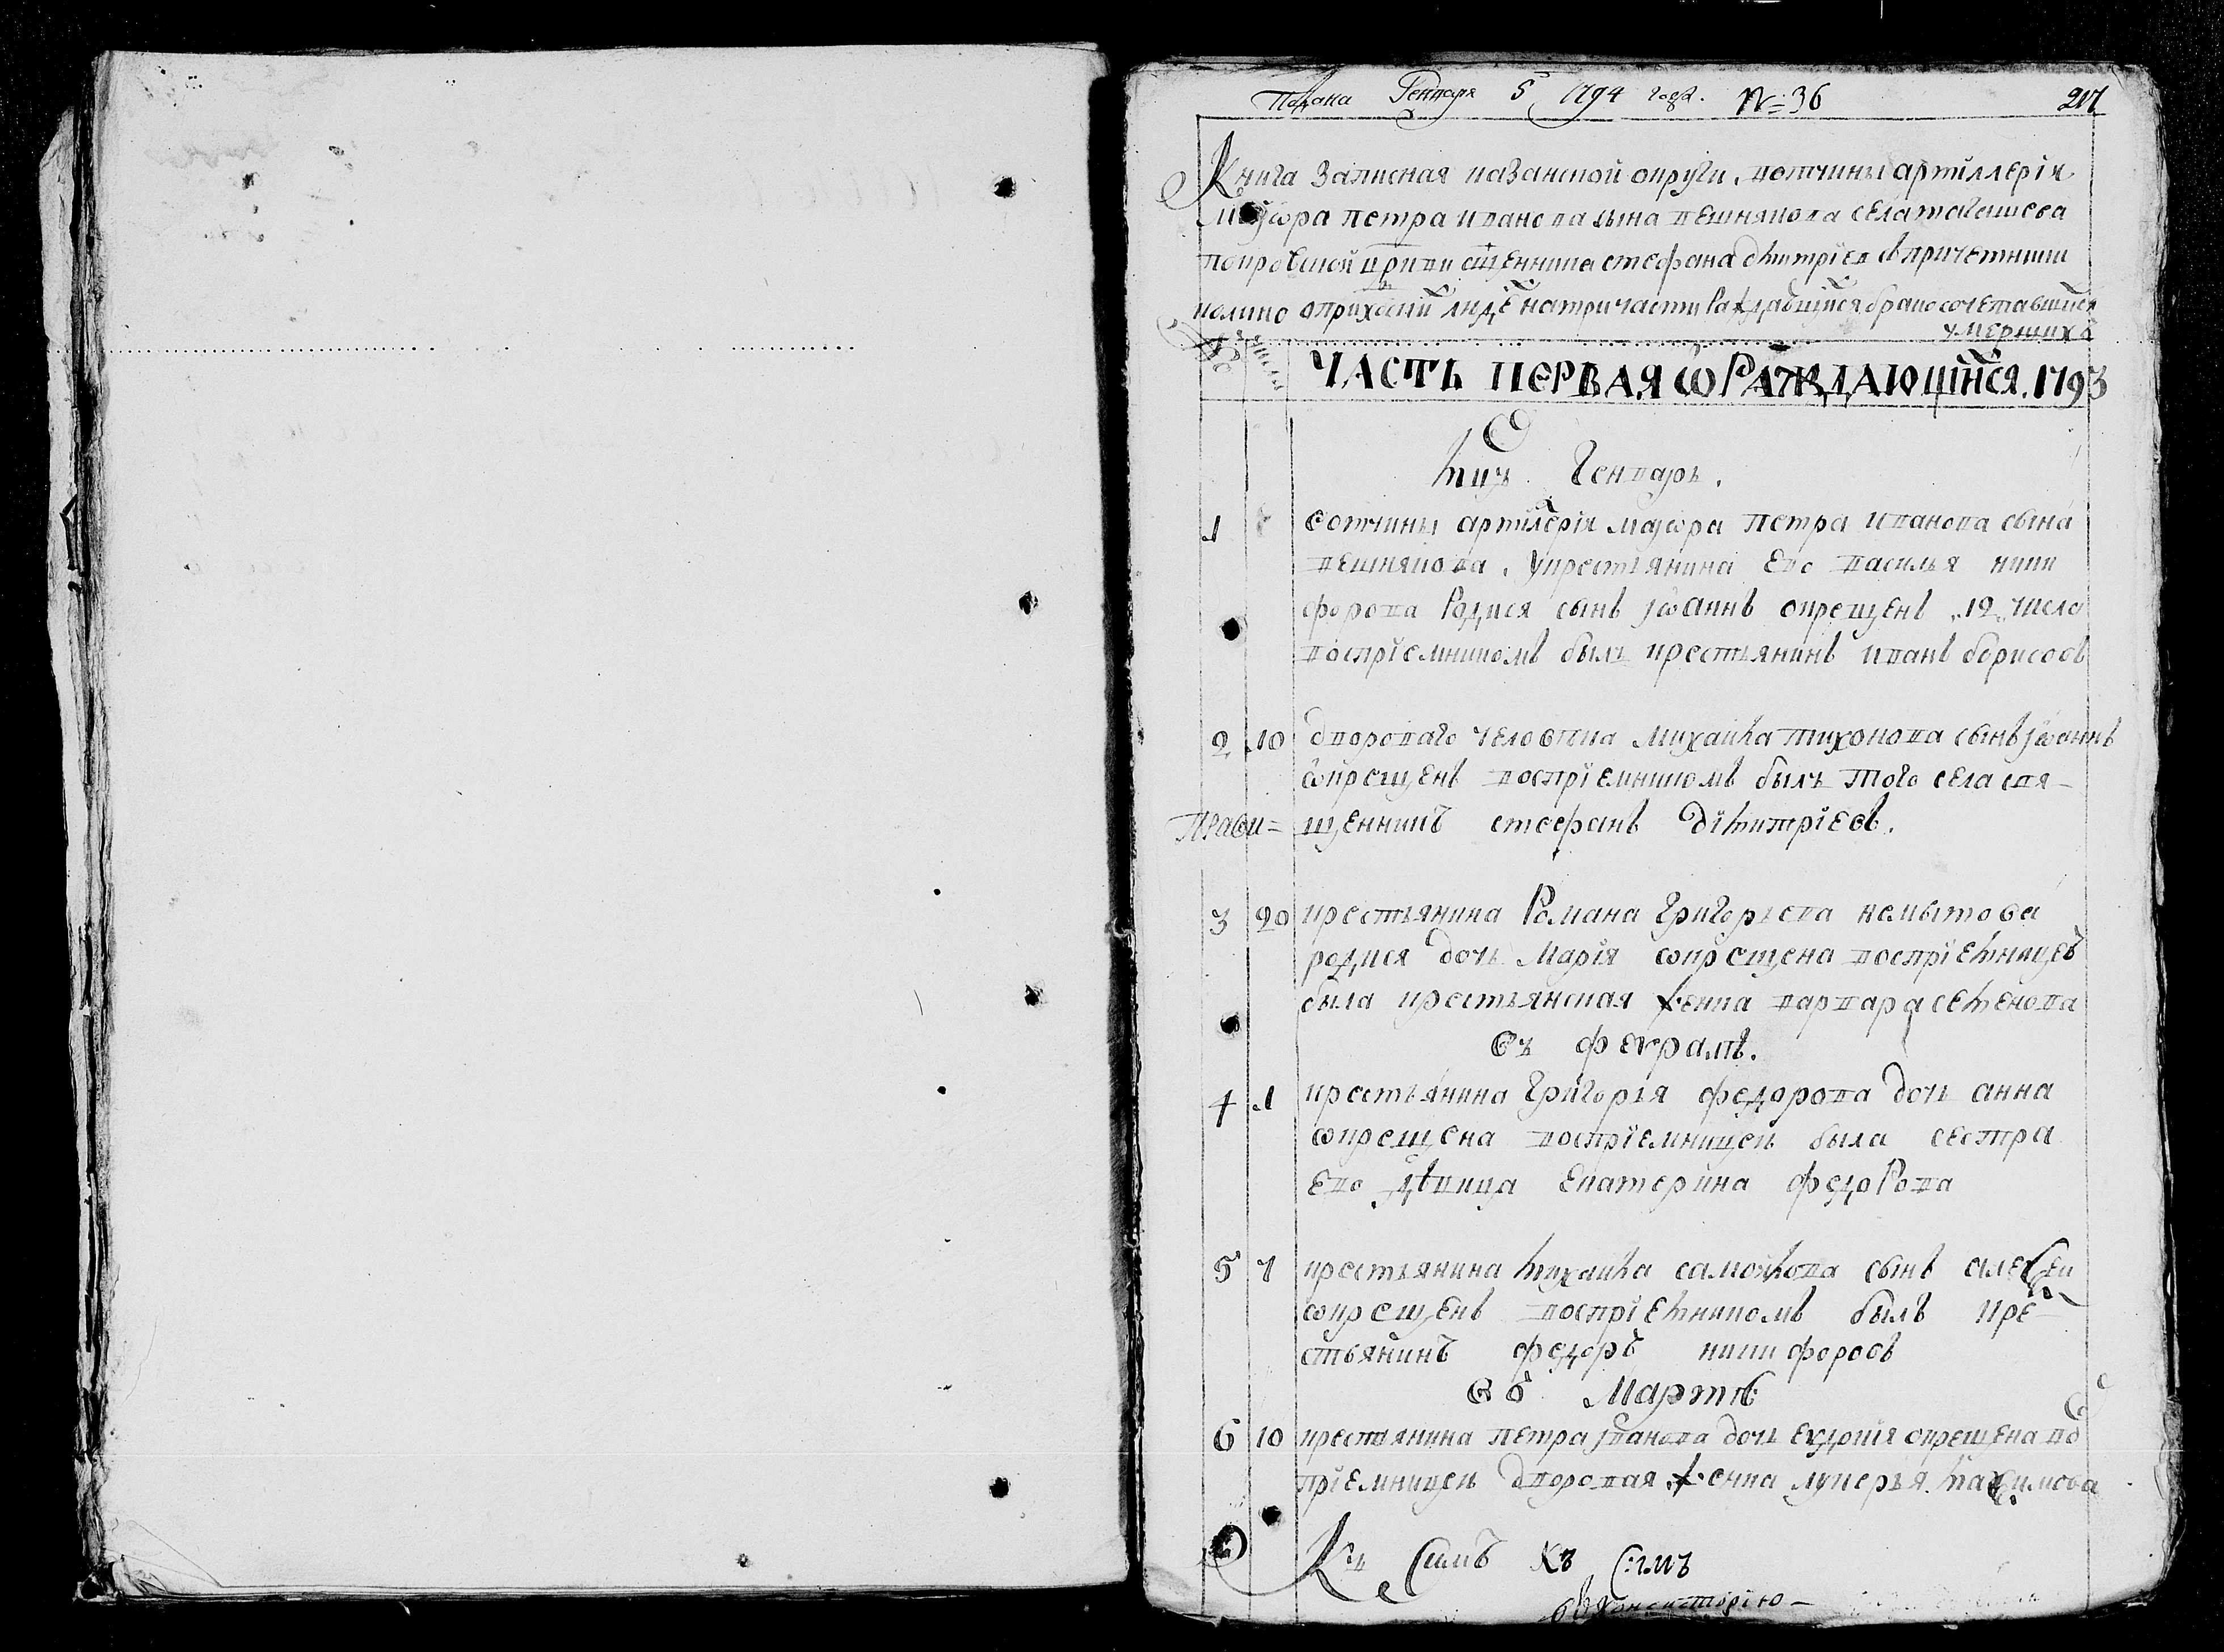 Подана Генваря 5 1794 года. №: 36 217
Книга Записная казанской округи, вотчины артиллерїи
маіѡра петра иванова сына вешнякова села тагашева
покровской цркви сщенника стефана дмитрїев съ причетники
коликое ѡ приходскихъ людехъ на три части раждающихся бракосочетавшихся
умершихъ
№ числа
ЧАСТЬ ПЕРВАЯ Ѡ РАЖДАЮЩИХСЯ. 1793
Мцъ Генварь.
1 вотчины артилерїи маіѡра петра иванова сына
вешнякова, у крестьянина ево василья ники
форова Родися сынъ іѡаннъ окрещенъ 12 числа
воспрїемникомъ былъ крестьянинъ иванъ борисовъ
2 10 дворового человека михаила тихонова сынъ іѡаннъ
ѡкрещенъ воспрїемникомъ былъ того села свя-
щенникъ стефанъ дїмитрїевъ.
3 20 крестьянина Романа григорьева немытова
родися дочь Марїя ѡкрещена воспрїемницею
была крестьянская женка варвара семенова
въ феѵралѣ.
4 1 крестьянина григорья федорова дочь анна
ѡкрещена воспрїемницей была сестра
ево дѣвица екатерина федорова
5 7 крестьянина михаила самойлова сынъ алеѯей
ѡкрещенъ воспрїемникомъ былъ кре-
стьянинъ федоръ никифоровъ
въ Мартѣ
6 10 крестьянина петра іванова дочь еѵдокия окрещена вос
прїемницей дворовая женка лукерья маѯимова
Къ Симъ къ Симъ
въ консисторїю-